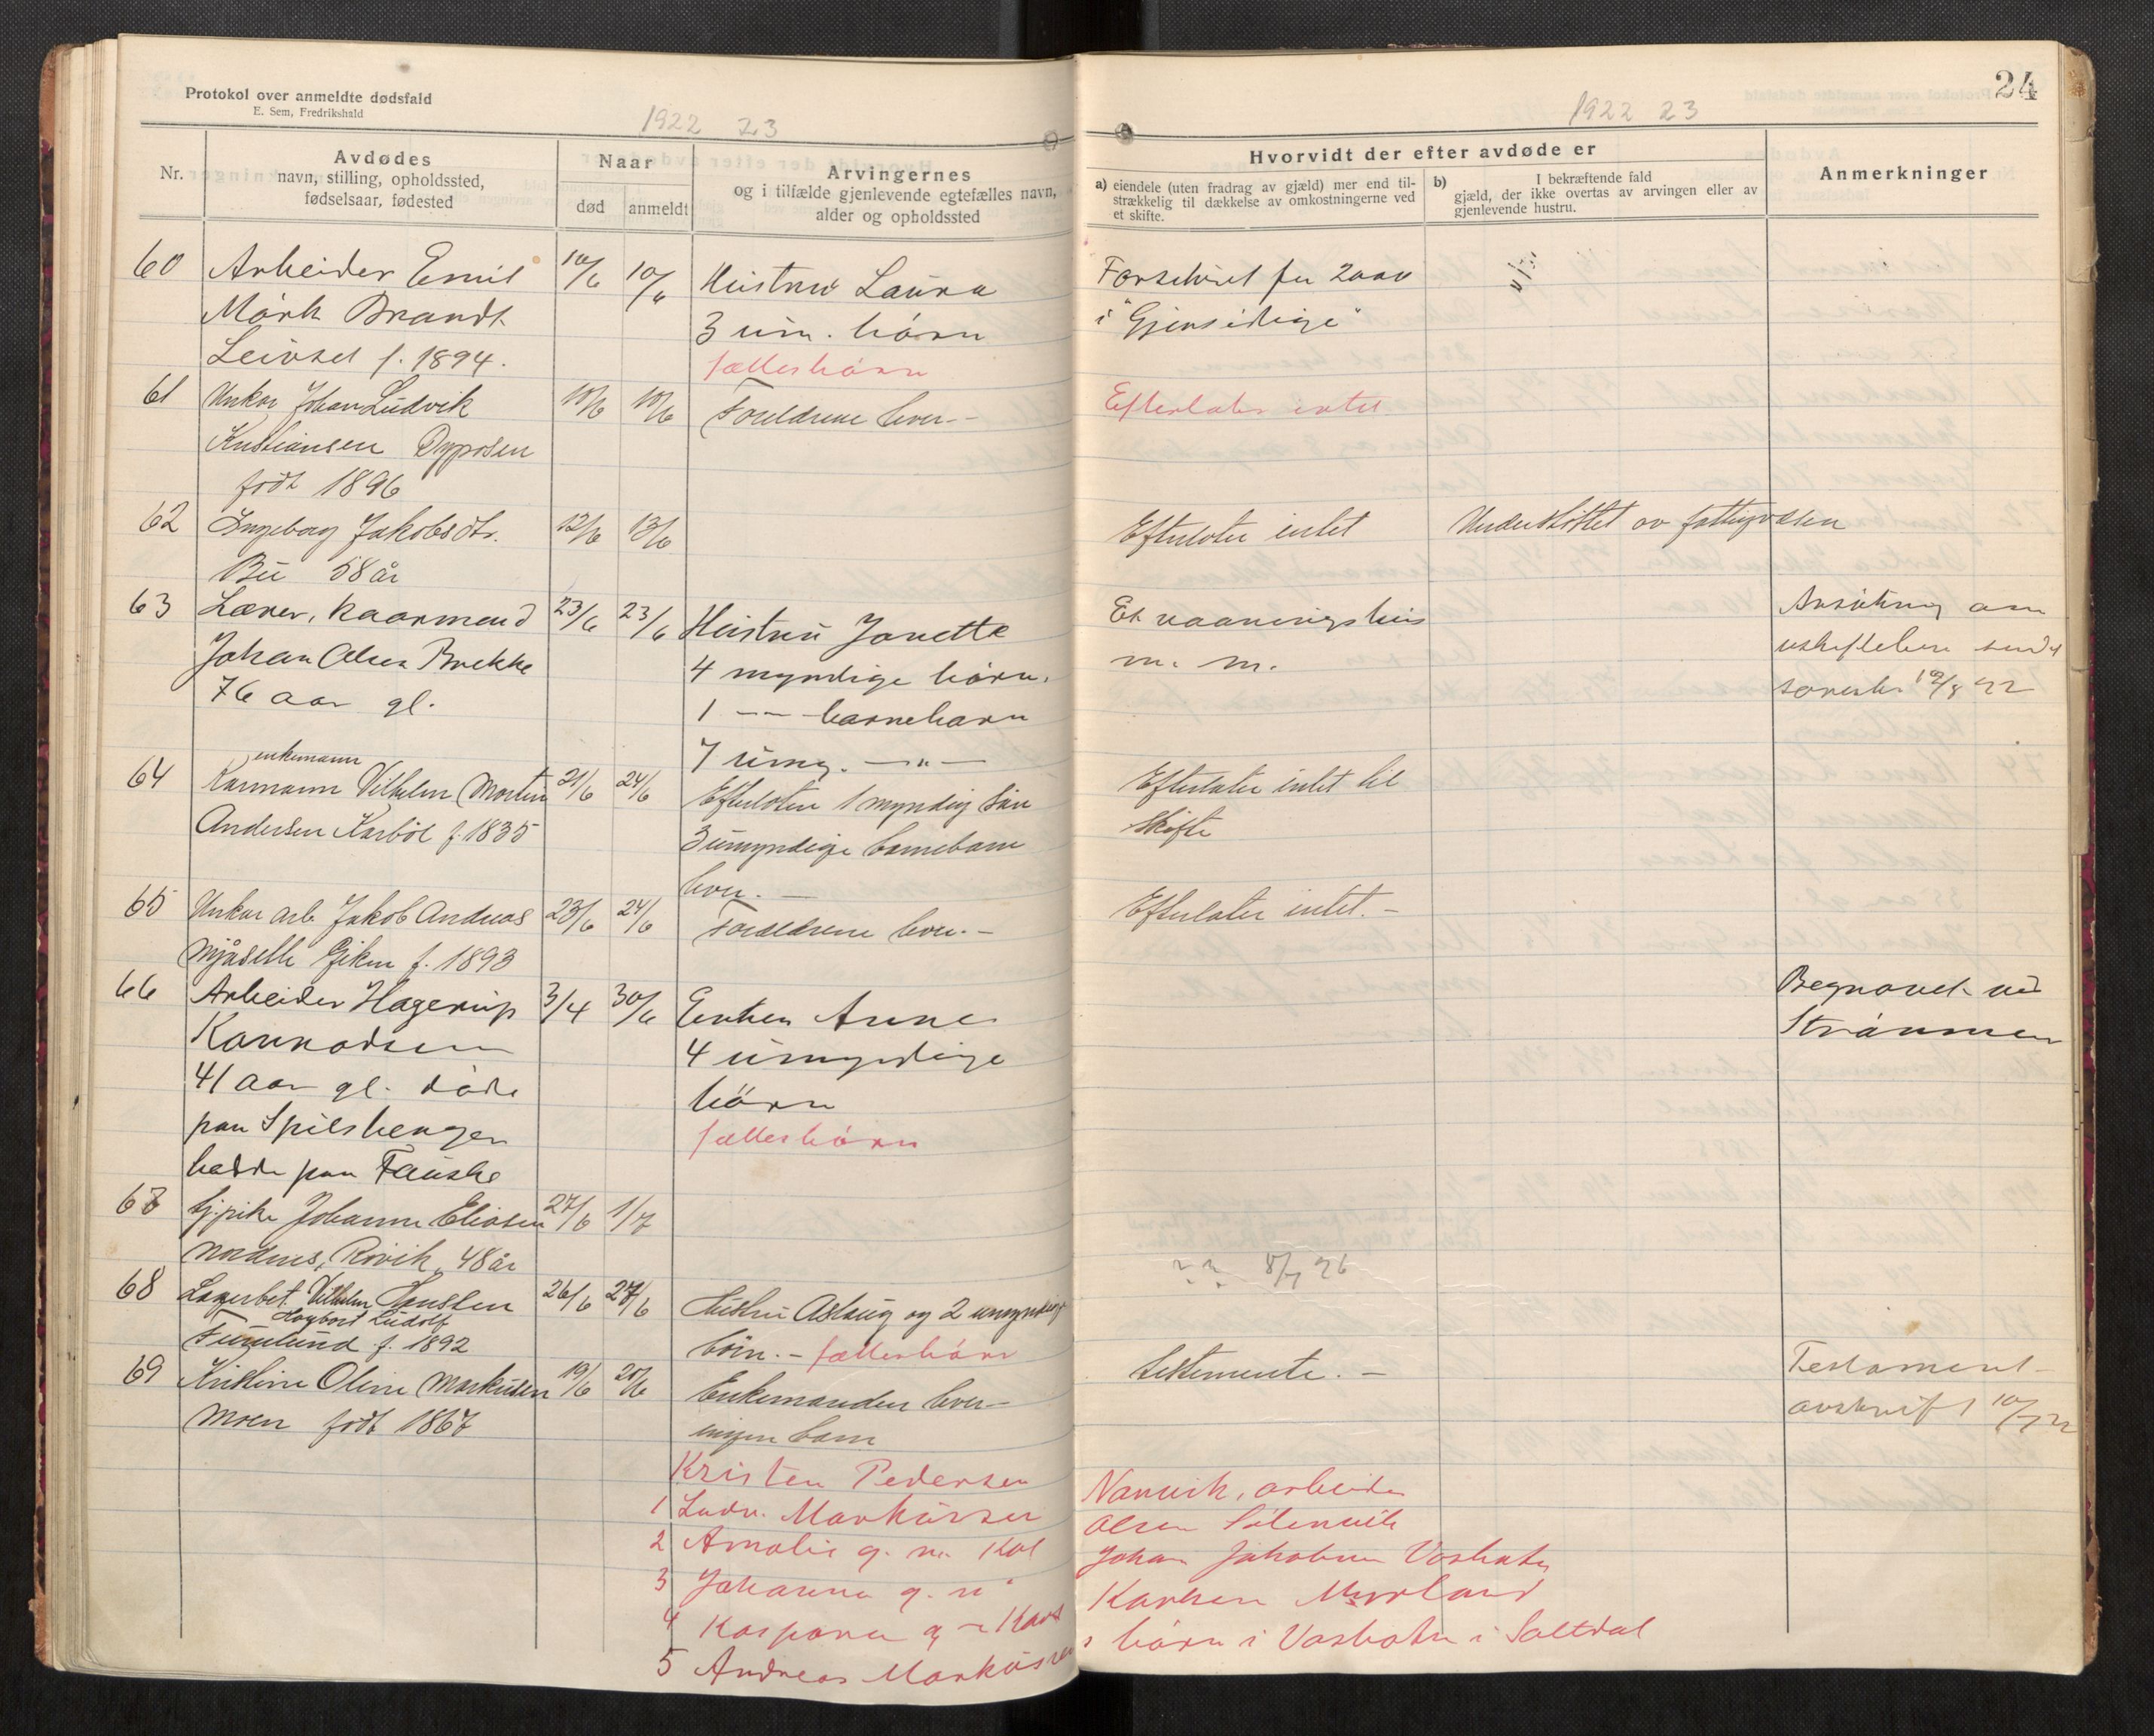 Protokol over anmeldte dødsfald
E. Sem, Fredrikshald
1922 23
Nr.
Avdødes
navn, stilling, opholdssted,
fødselsaar, fødested
Naar
død
anmeldt
Arvingernes
og i tilfælde gjenlevende egtefælles navn,
alder og opholdssted
60 Arbeider Emil 10/6 10/6 Hustru Laura
Mörk Brandt 3 um. börn
Leivset f. 1894. fællesbörn
61 Unkar Johan Ludvik 10/6 10/6 Foreldrene lever. -
Kristiansen Dyposen
född 1896
62 Ingeborg Jakobsdtr. 12/6 13/6
Bü 58 år
63 Lærer, kaarmand 23/6 23/6 Hustru Janette
Johan Olsen Brekke 4 myndige börn.
76 aar gl. 1 -"- barnebarn
7 umy. -"-
enkemann
64 Karmann Vilhelm Martin 21/6 24/6 Efterlater 1 myndig sön
Andersen Karböl f. 1835 3 umyndige barnebarn
lever. -
65 Unkar arb. Jakob Andreas 23/6 24/6 Foreldrene lever. -
Mjåselle Eiken f. 1893
66 Arbeider Hagerup 3/4 30/6 Enken Anne
Konradsen 4 umyndige
41 aar gl. döde börn
paa Spitsbergen fællesbörn
hadde paa Fauske
67 Gj.pike Johanne Eliasen 27/6 1/7
Nordnes, Rövik, 48 år
68 Lagerbet. Vilhelm Hansten 26/6 27/6 Hustru Aslaug og 2 umyndige
Hagbart Ludolf
Furulund f. 1892 börn. - fællesbörn
69 Kristine Oline Markusen 19/6 20/6 Enkemanden lever -
Moen född 1867 ingen barn
Kristen Pedersen
1 Ludv. Markussen
2 Amalie g. m. Kol
3 Johanna g. m
4 Kaspara g m Karl
5 Andreas Markussen
24
1922 23
Hvorvidt der efter avdøde er
a) eiendele (uten fradrag av gjæld) mer end til-
strækkelig til dækkelse av omkostningerne ved
et skifte.
b) I bekræftende fald
gjæld, der ikke overtas av arvingen eller av
gjenlevende hustru.
Anmerkninger
Forsikret for 2000
i "Gjensidige"
Efterlater intet
Efterlater intet Understöttet av fattigvæsen
Et vaaningshus Ansökning om
m. m. uskifteben sendt
sorensk. 19/8 22
Efterlater intet til
Skifte
Efterlater intet. -
Begravet ved
Strömmen
? ? 8/7 26
Testamente. - Testament-
avskrift 10/7 22
Narvik, arbeider
Olsen Silenvik
Johan Jakobsen Vasbotn
Karlsen Myrland
s börn i Vasbotn i Saltdal